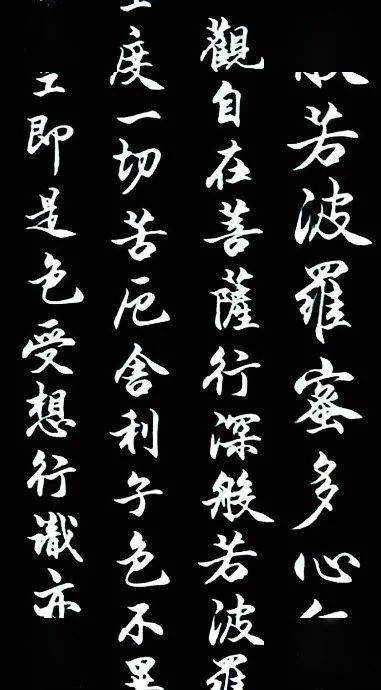 般若波羅蜜多心
觀自在菩薩行深般若波羅
空度一切苦厄舍利子色不異
空即是色受想行識亦